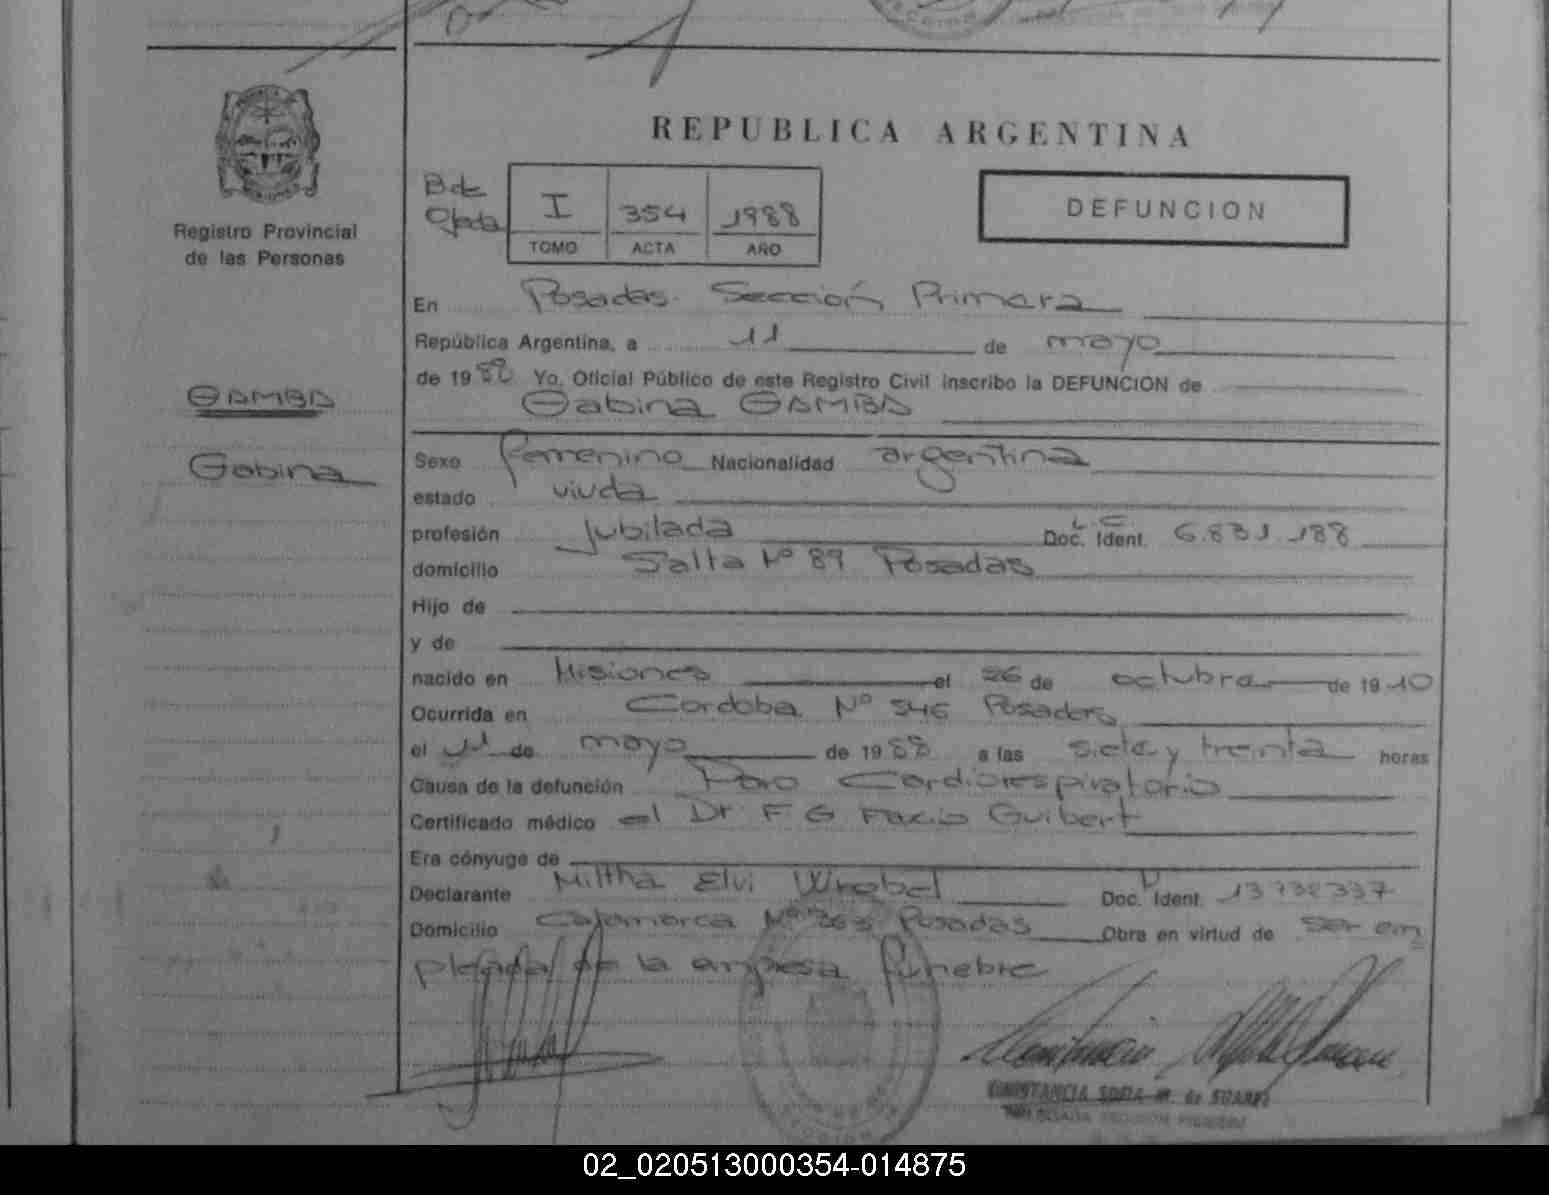 REPUBLICA ARGENTINA
Registro Provincial
de las Personas
Bdt
Ojeda
I 354 1988
TOMO ACTA AÑO
DEFUNCION
En Posadas. Sección Primera
República Argentina, a 11 de mayo
de 1988 Yo, Oficial Público de este Registro Civil inscribo la DEFUNCION de
Gabina GAMBA
GAMBA
Gabina
Sexo femenino Nacionalidad argentina
estado viuda
profesión Jubilada Doc. Ident. L.C 6.831.188
domicilio Salta Nº 89 Posadas
Hijo de
y de
nacido en Misiones el 26 de octubre de 1910
Ocurrida en Cordoba Nº 546 Posadas
el 11 de mayo de 1988 a las siete y treinta horas
Causa de la defunción Paro Cardiorespiratorio
Certificado médico el Dr F G Facio Guibert
Era cónyuge de
Declarante Miltha Elvi Wrobel Doc. Ident. 13732337
Domicilio Catamarca Nº 363 Posadas Obra en virtud de ser em
pleada de la empresa fúnebre
CONSTANCIA SOFIA M. de SUAREZ
02_020513000354-014875